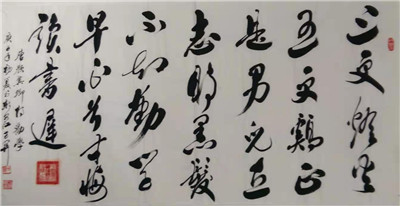 三更燈火
五更鷄正
是男兒立
志時黑髮
不知勤學
早白首方悔
讀書遲
唐顏真卿詩勸學